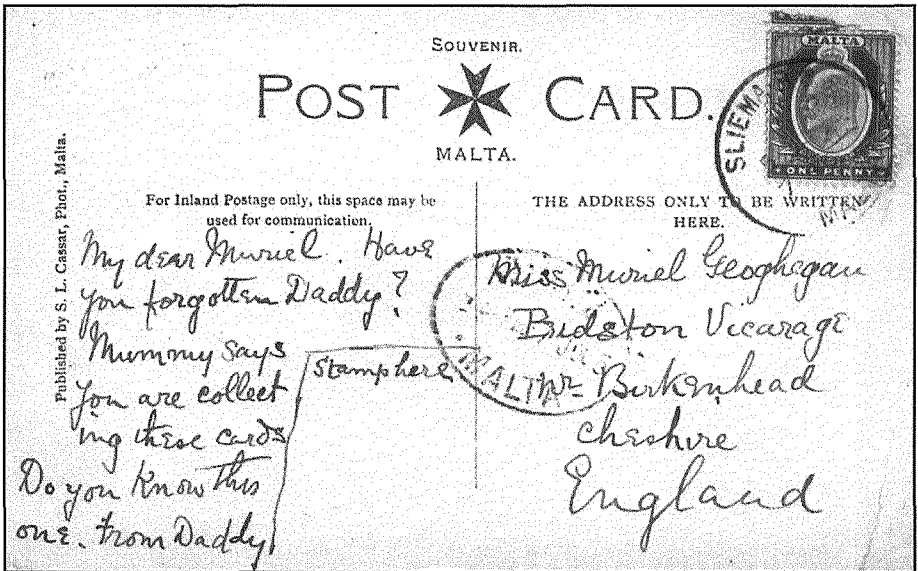 SOUVENIR.
POST CARD.
MALTA.
Published by S. L. Cassar, Phot., Malta.
For Inland Postage only, this space may be
used for communication.
My dear Muriel. Have
you forgotten Daddy?
Mummy says
you are collect
ing these cards
Do you Know This
one. from Daddy.
Stamp here
THE ADDRESS ONLY TO BE WRITTEN
HERE.
Miss Muriel Geoghegan
Bidston Vicarage
nr Birkenhead
Cheshire
England
MALTA
ONE PENNY
SLIEMA
MALTA